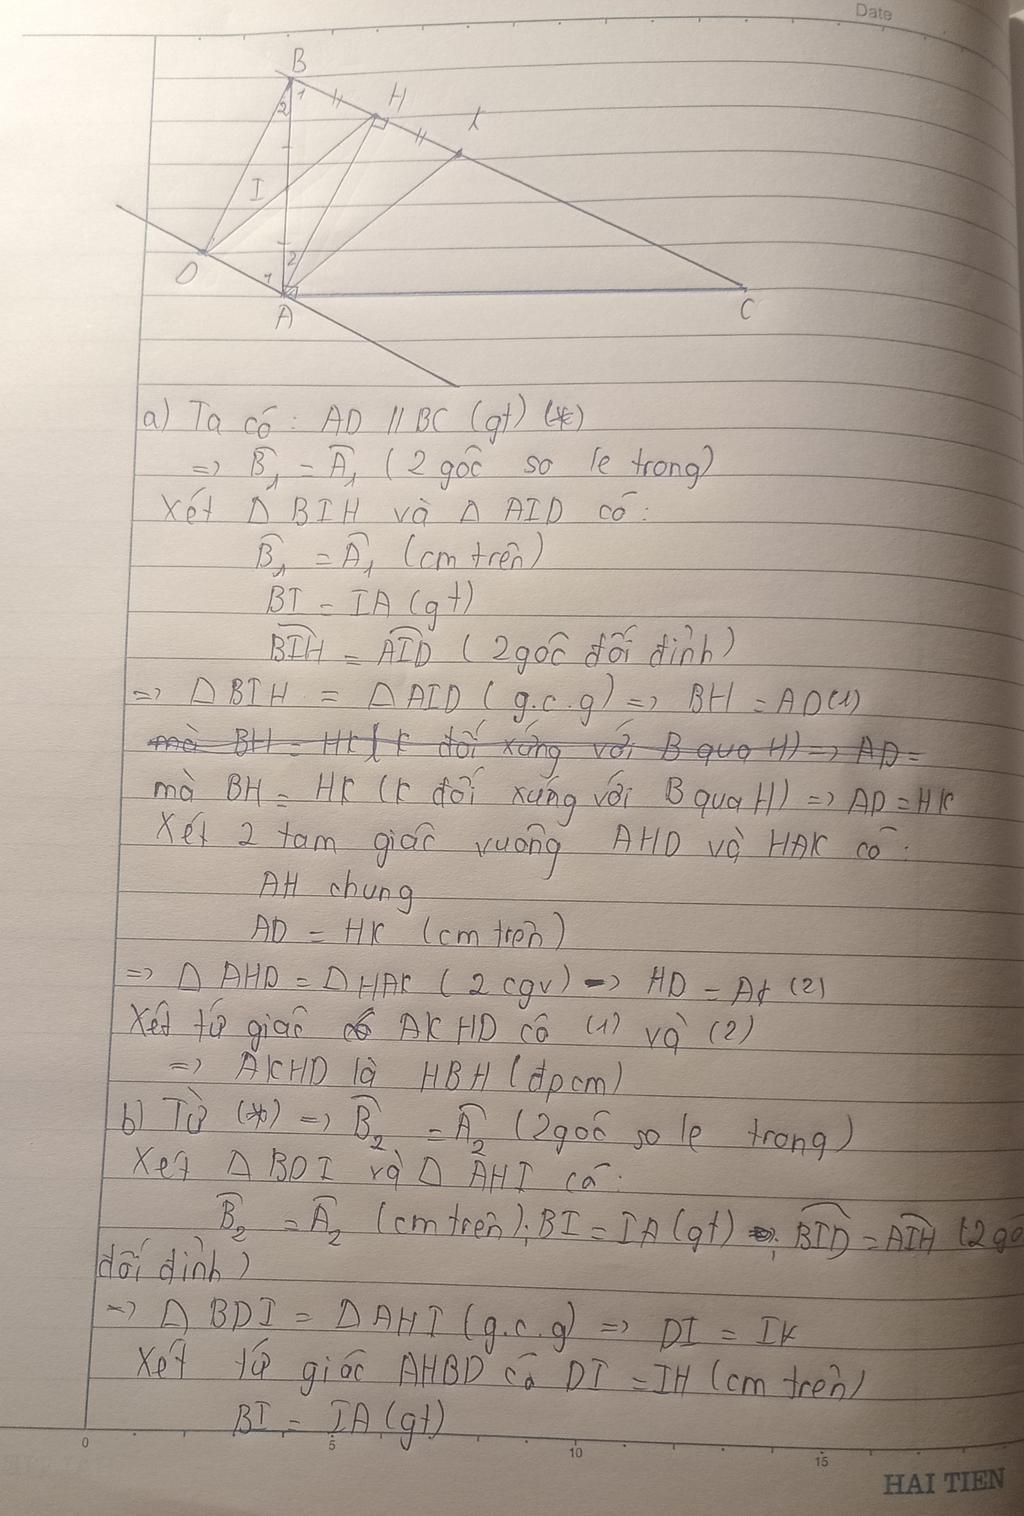 Date
B
1
2
H
K
I
D
1
2
A
C
a) Ta có: AD // BC (gt) (*)
=> B̂₁ = Â₁ (2 góc so le trong)
Xét Δ BIH và Δ AID có:
B̂₁ = Â₁ (cm trên)
BI = IA (gt)
BIH = AID (2 góc đối đỉnh)
=> Δ BIH = Δ AID (g.c.g) => BH = AD (1)
mà BH = HK (K đối xứng với B qua H) => AD =
mà BH = HK (K đối xứng với B qua H) => AD = HK
Xét 2 tam giác vuông AHD và HAK có:
AH chung
AD = HK (cm trên)
=> Δ AHD = Δ HAK (2 cgv) => HD = AK (2)
Xét tứ giác AKHD có (1) và (2)
=> AKHD là HBH (đpcm)
b) Từ (*) => B̂₂ = Â₂ (2 góc so le trong)
Xét Δ BDI và Δ AHI có:
B̂₂ = Â₂ (cm trên); BI = IA (gt); BID = AIH (2 gó
đối đỉnh)
=> Δ BDI = Δ AHI (g.c.g) => DI = IK
Xét tứ giác AHBD có DI = IH (cm trên)
BI = IA (gt)
0 5 10 15
HAI TIEN